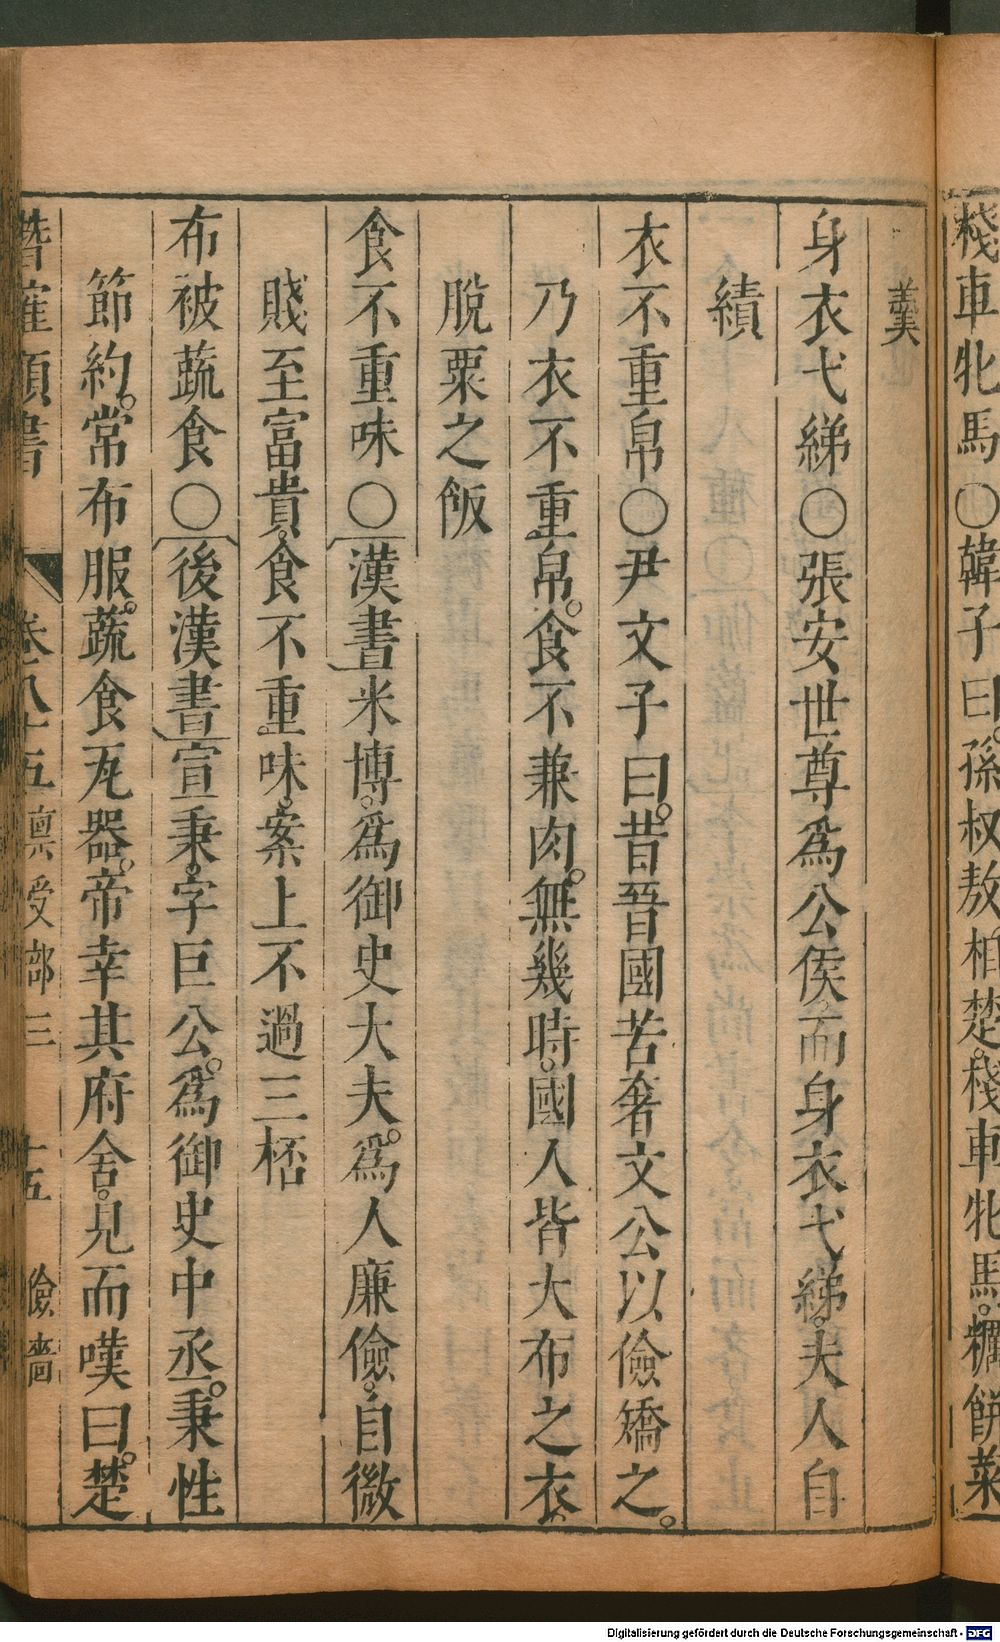 棧車牝馬〇韓子曰孫叔敖相楚棧車牝馬糲餅菜
羹
身衣弋綈〇張安世尊爲公侯而身衣弋綈夫人自
績
衣不重帛〇尹文子曰昔晉國苦奢文公以儉矯之
乃衣不重帛食不兼肉無幾時國人皆大布之衣
脫粟之飯
食不重味〇漢書米博爲御史大夫爲人廉儉自微
賤至富貴食不重味案上不過三桮
布被蔬食〇後漢書宣秉字巨公爲御史中丞秉性
節約常布服蔬食瓦器帝幸其府舍見而嘆曰楚
卷八十五 稟受部三 十五 儉嗇
Digitalisierung gefördert durch die Deutsche Forschungsgemeinschaft - DFG